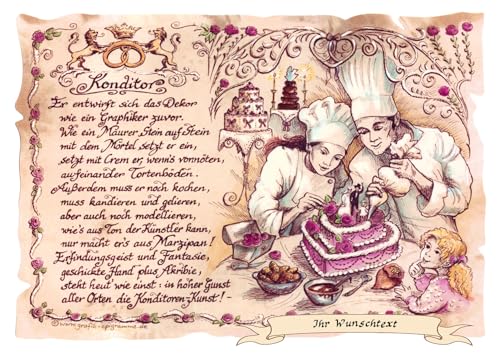 Konditor
Er entwirft sich das Dekor
wie ein Graphiker zuvor.
Wie ein Maurer Stein auf Stein
mit dem Mörtel setzt er ein,
setzt mit Crem er, wenn's vonnöten,
aufeinander Tortenböden.
Außerdem muss er noch kochen,
muss kandieren und gelieren,
aber auch noch modellieren,
wie's aus Ton der Künstler kann,
nur macht er's aus Marzipan!
Erfindungsgeist und Fantasie,
geschickte Hand plus Akribie,
steht heut wie einst: in hoher Gunst
aller Orten die Konditoren-Kunst!-
©www.grafik-epigramme.de
Ihr Wunschtext